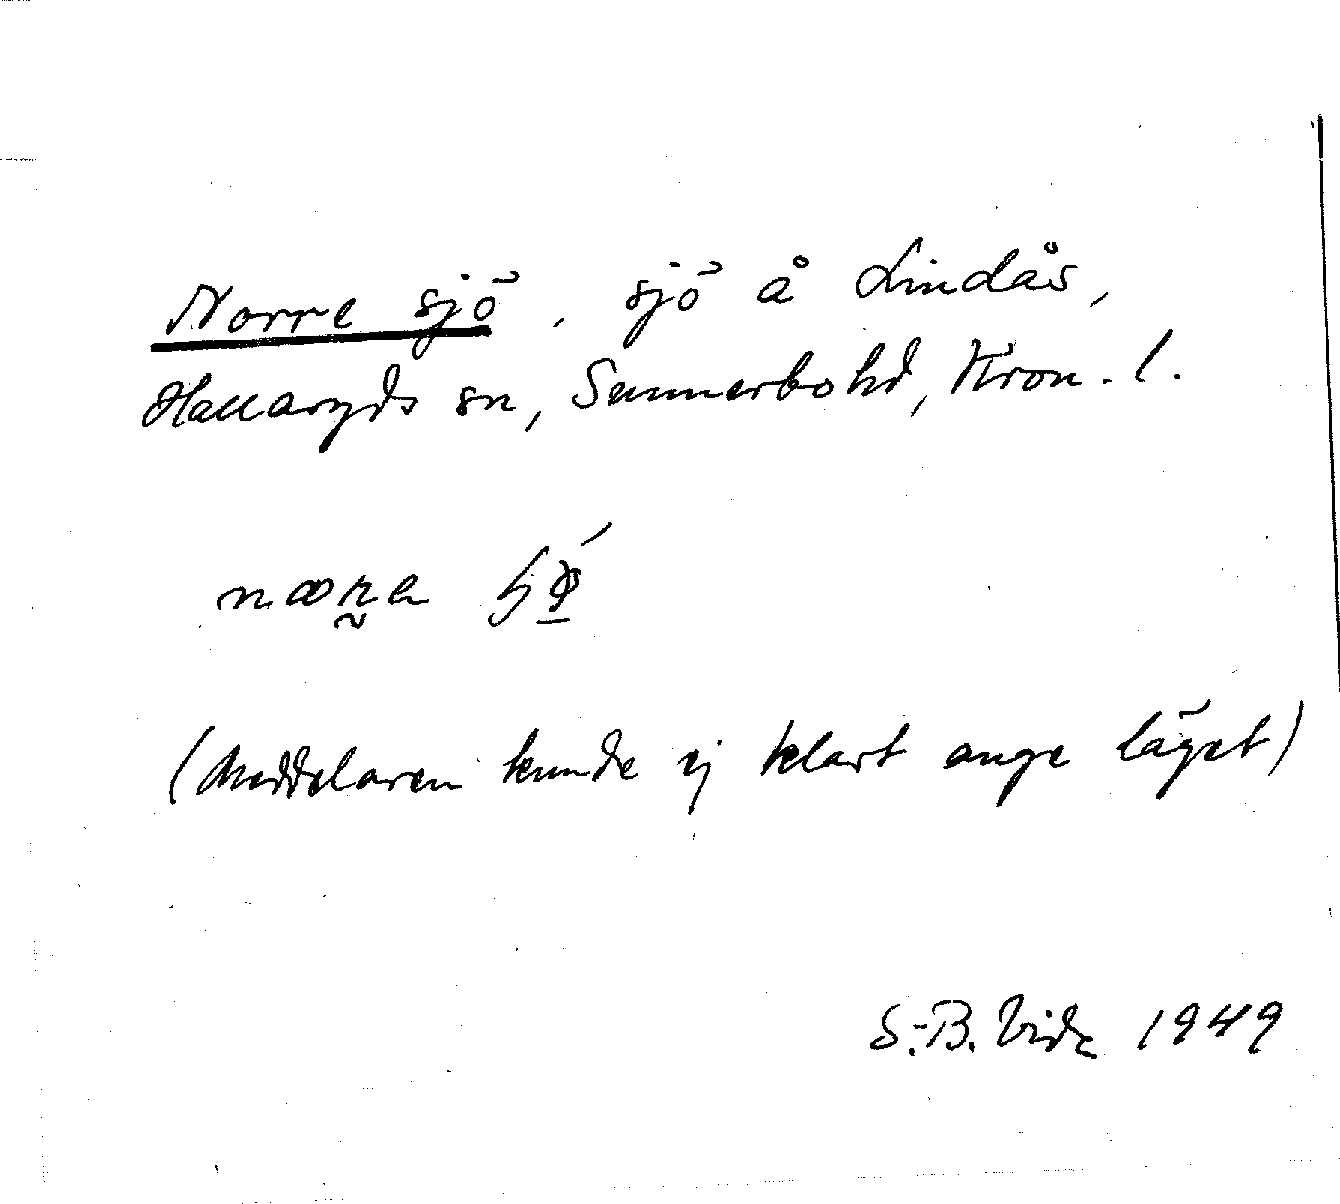 Norre sjö, sjö å Lindås,
Hallaryds sn, Sunnerbo hd, Kron. l.
(Meddelaren kunde ej klart ange läget)
S.-B. Vide 1949